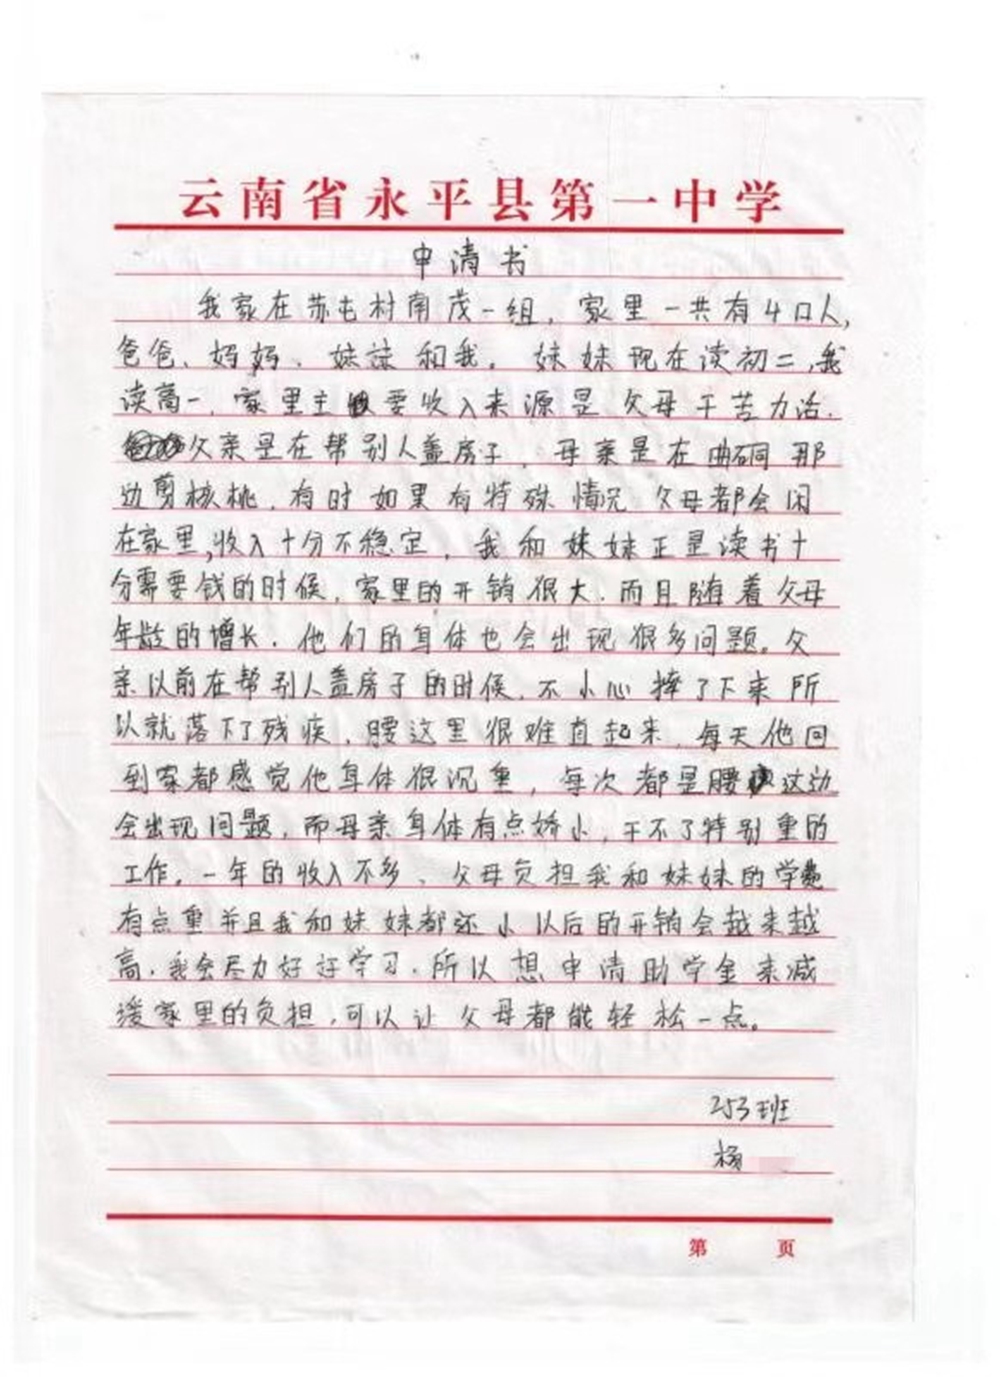 云南省永平县第一中学
申请书
我家在苏屯村南茂一组，家里一共有4口人，
爸爸、妈妈、妹妹和我。妹妹现在读初二，我
读高一，家里主要收入来源是父母干苦力活，
父亲是在帮别人盖房子，母亲是在曲硐那
边剪核桃，有时如果有特殊情况父母都会闲
在家里，收入十分不稳定，我和妹妹正是读书十
分需要钱的时候，家里的开销很大，而且随着父母
年龄的增长，他们的身体也会出现很多问题。父
亲以前在帮别人盖房子的时候，不小心摔了下来所
以就落下了残疾，腰这里很难直起来，每天他回
到家都感觉他身体很沉重，每次都是腰这边
会出现问题，而母亲身体有点娇小，干不了特别重的
工作。一年的收入不多、父母负担我和妹妹的学
有点重并且我和妹妹都还小以后的开销会越来越
高，我会尽力好好学习，所以想申请助学金来减
缓家里的负担，可以让父母都能轻松一点。
253班
杨
第 页